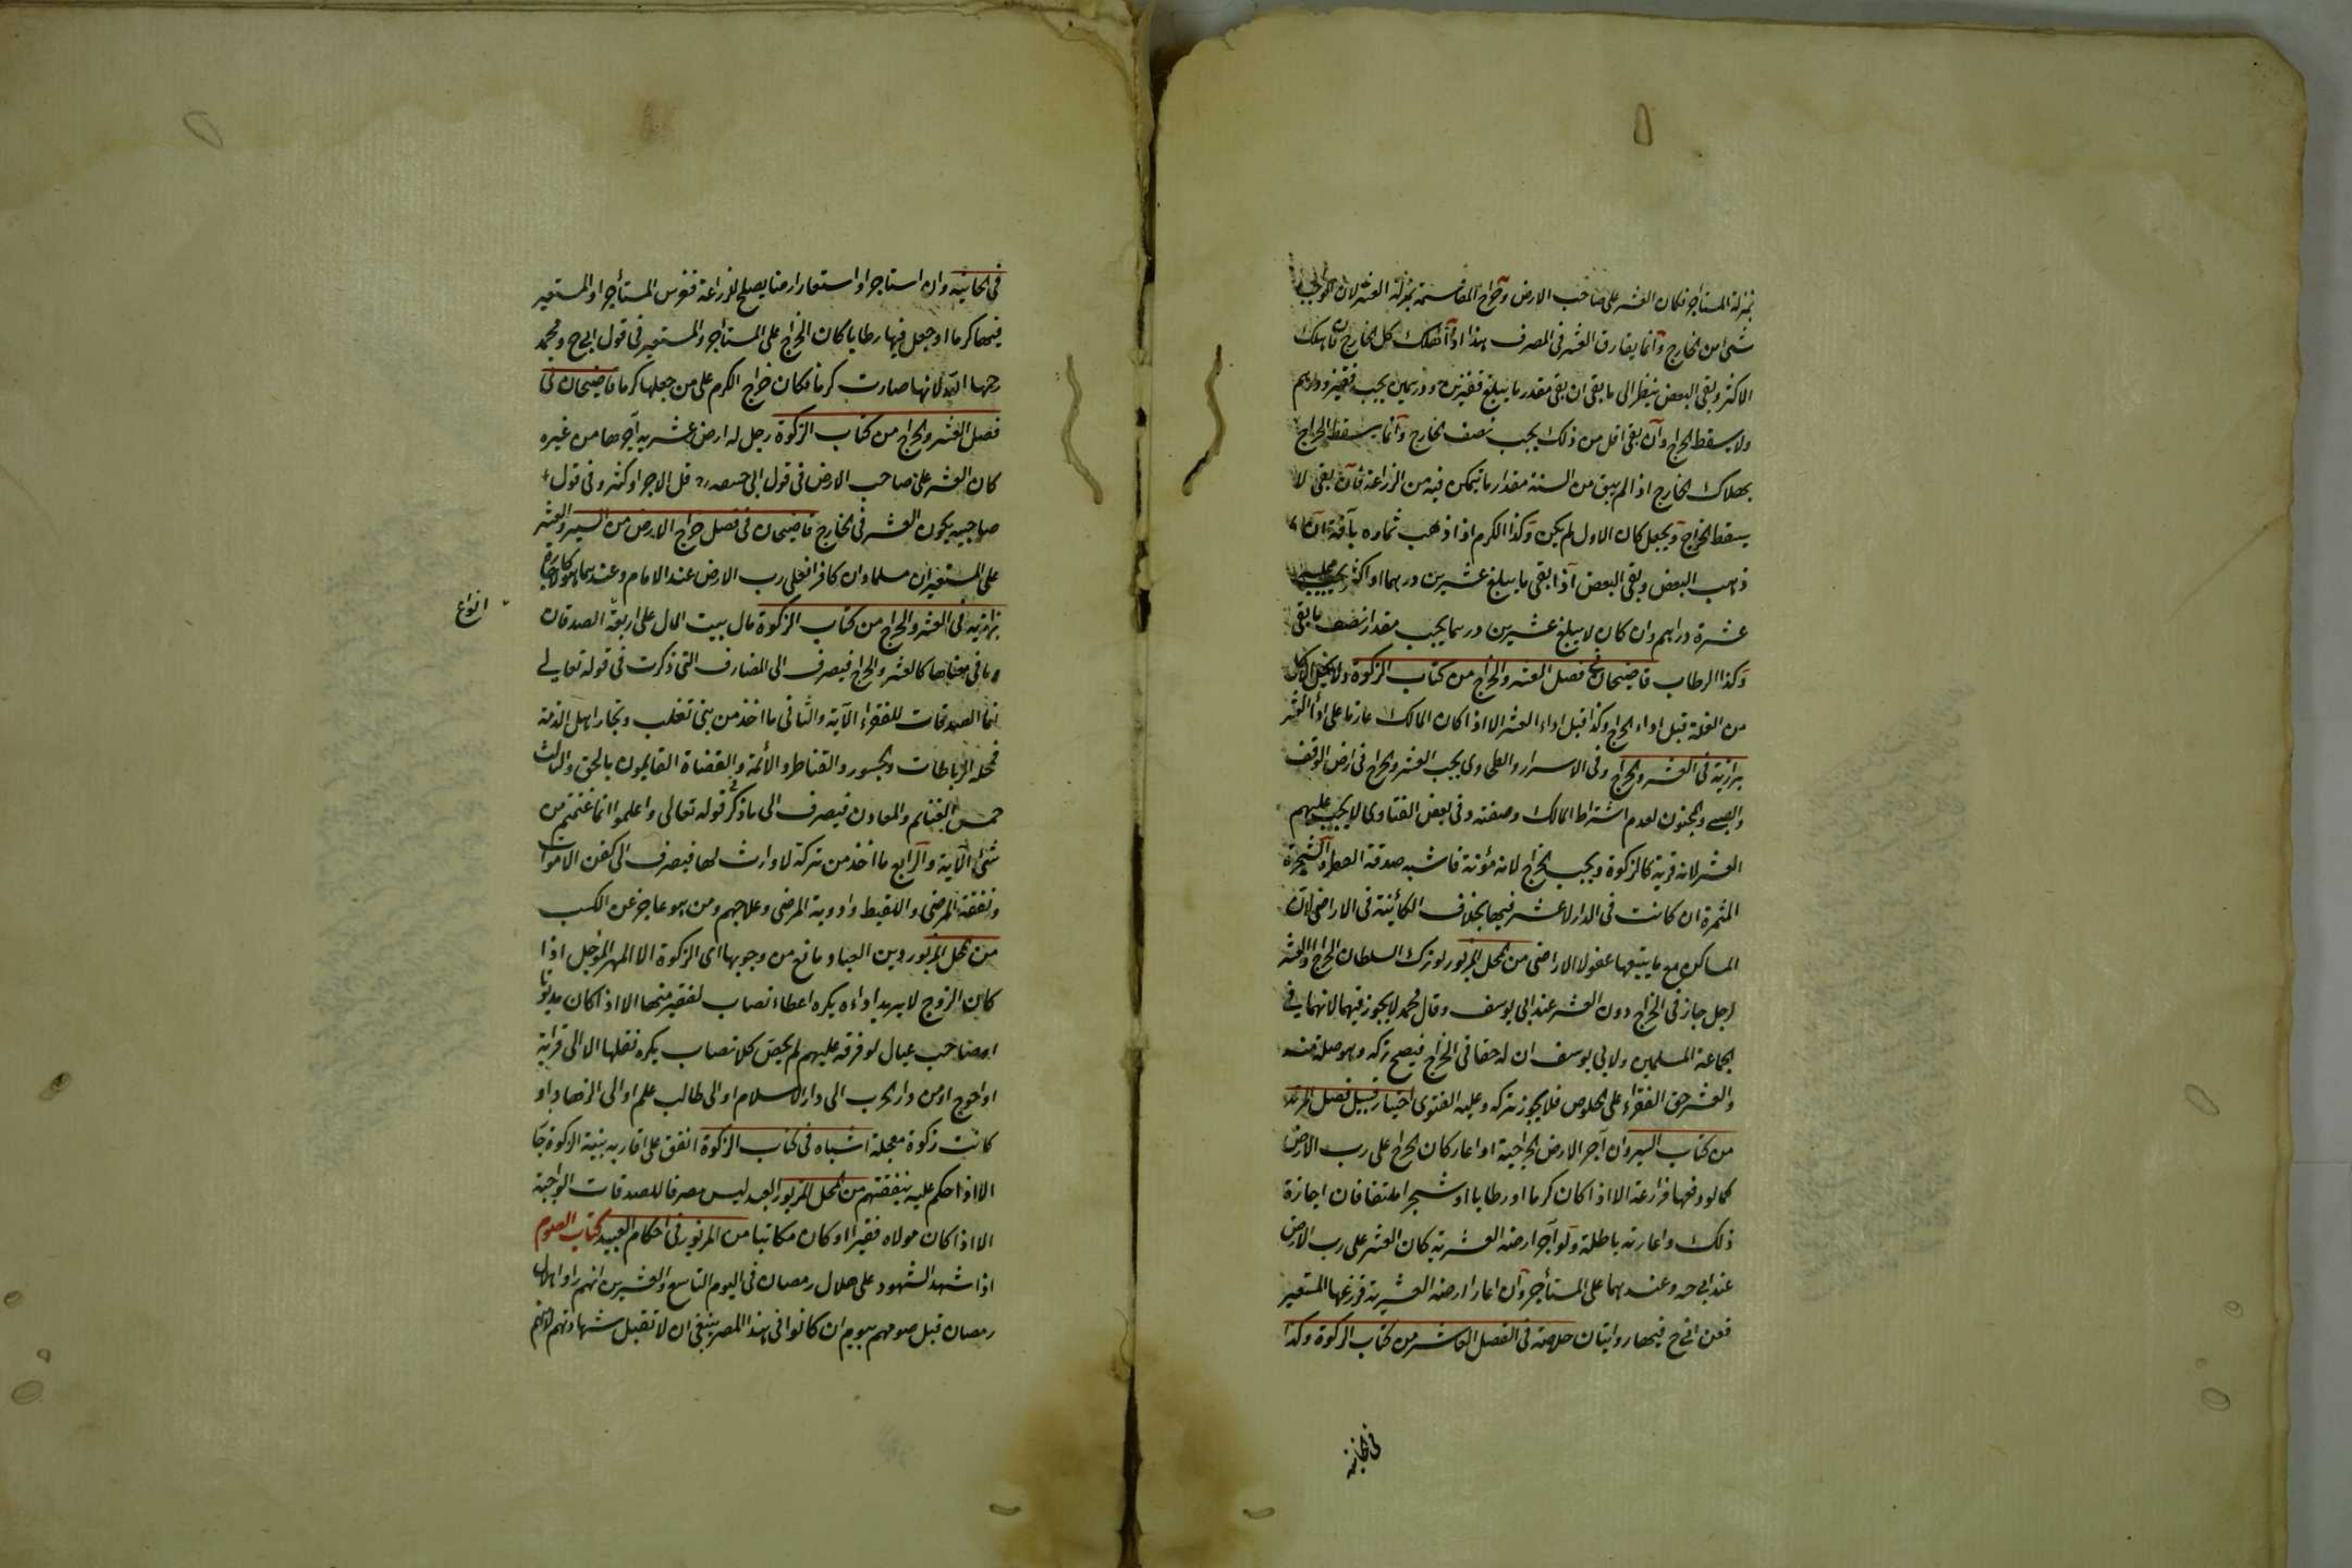 بمنزلة المستاجر فكان العشر على صاحب الارض وخراج المقاسمة بمنزلة العشر لان الواجب
شئ من الخارج وانما يفارق العشر فى المصرف هذا اذا هلك كل الخارج فان هلك
الاكثر وبقى البعض ينظر الى ما بقى ان بقى مقدر ما يبلغ قفيزين ودرهمين يجب قفيز ودرهم
ولا يسقط الخراج وان بقى اقل من ذلك يجب نصف الخارج وانما يسقط الخراج
بهلاك الخارج اذا لم يبق من السنة مقدار ما يتمكن فيه من الزراعة فان بقى لا
يسقط الخراج ويجعل كان الاول لم يكن وكذا الكرم اذا ذهب ثماره بآفة ان
ذهب البعض وبقى البعض اذا بقى ما يبلغ عشرين درهما او اكثر يجب عليه
عشرة دراهم وان كان لا يبلغ عشرين درهما يجب مقدار نصف ما بقى
وكذا الرطاب قاضيخان فى فصل العشر والخراج من كتاب الزكوة ولا يحل الاكل
من الغلة قبل اداء الخراج وكذا قبل اداء العشر الا اذا كان المالك عازما على اداء العشر
بزازية فى العشر والخراج وفى الاسرار والطحاوى يجب العشر والخراج فى ارض الوقف
والصبى والمجنون لعدم اشتراط المالك وصفته وفى بعض الفتاوى لا يجب عليهم
العشر لانه قربة كالزكوة ويجب الخراج لانه مؤنة فاشبه صدقة الفطر والشجرة
المثمرة ان كانت فى الدار لا عشر فيها بخلاف الكائنة فى الاراضى لان
المساكن مع ما يتبعها عفو لا الاراضى من المحل المزبور لو ترك السلطان الخراج والعشر
لرجل جاز فى الخراج دون العشر عند ابى يوسف وقال محمد لا يجوز فيهما لانهما فئ
لجماعة المسلمين ولابى يوسف ان له حقا فى الخراج فيصح تركه وهو صلة منه
والعشر حق الفقراء على الخلوص فلا يجوز تركه وعليه الفتوى اختيار قبيل فصل المرتد
من كتاب السير وان آجر الارض الخراجية او اعار كان الخراج على رب الارض
كما لو دفعها مزارعة الا اذا كان كرما او رطابا او شجرا ملتفا فان اجازة
ذلك واعارته باطلة ولو آجر ارضه العشرية كان العشر على رب الارض
عند ابى حـ وعندهما على المستأجر وان اعار ارضه العشرية فزرعها المستعير
فعن ابى ح فيها روايتان خلاصة فى الفصل العاشر من كتاب الزكوة وكذا
فى الخانية
فى الخانية وان استاجر او استعار ارضا يصلح للزراعة فغرس المستأجر او المستعير
فيها كرما او جعل فيها رطابا كان الخراج على المستأجر والمستعير فى قول ابى ح ومحمد
رحمهما الله لانها صارت كرما فكان خراج الكرم على من جعلها كرما قاضيخان فى
فصل العشر والخراج من كتاب الزكوة رجل له ارض عشرية آجرها من غيره
كان العشر على صاحب الارض فى قول ابى حنيفه قل الاجر او كثر وفى قول
صاحبيه يكون العشر فى الخارج قاضيخان فى فصل خراج الارض من السير والعشر
على المستعير ان مسلما وان كافرا فعلى رب الارض عند الامام وعندهما هو كالاجارة
بزازية فى العشر والخراج من كتاب الزكوة مال بيت المال على اربعة الصدقات
انواع
وما فى معناها كالعشر والخراج فيصرف الى المصارف التى ذكرت فى قوله تعالى
انما الصدقات للفقراء الآية والثانى ما اخذ من بنى تغلب وتجار اهل الذمة
فمحله الرباطات والجسور والقناطر والأئمة والقضاة القايمون بالحق والثالث
خمس الغنايم والمعادن فيصرف الى ما ذكر فى قوله تعالى واعلموا انما غنمتم من
شئ الآية والرابع ما اخذ من تركة لا وارث لها فيصرف الى كفن الاموات
ونفقة المرضى واللقيط وادوية المرضى وعلاجهم ومن هو عاجز عن الكسب
من المحل المزبور دين العباد مانع من وجوبها اى الزكوة الا المهر المؤجل اذا
كان الزوج لا يريد اداءه يكره اعطاء نصاب لفقير منها الا اذا كان مديونا
او صاحب عيال لو فرقه عليهم لم يخص كلا نصاب يكره نقلها الا الى قرابة
او احوج او من دار الحرب الى دار الاسلام او الى طالب علم او الى الزهاد او
كانت زكوة معجلة اشباه فى كتاب الزكوة انفق على اقاربه بنية الزكوة جاز
الا اذا حكم عليه بنفقتهم من المحل المزبور العبد ليس مصرفا للصدقات الواجبة
الا اذا كان مولاه فقيرا او كان مكاتبا من المزبور فى احكام العبيد كتاب الصوم
اذا شهد الشهود على هلال رمضان فى اليوم التاسع والعشرين انهم راوا هلال
رمضان قبل صومهم بيوم ان كانوا فى هذا المصر ينبغى ان لا تقبل شهادتهم لانهم